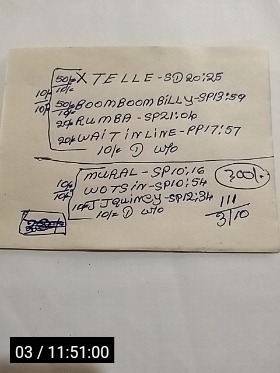 50/- X TELLE - SD 20:25
10/-
10/- 50/- BOOMBOOM BILLY - SP13:59
10/- 10/-
20/- RUMBA - SP21:06
20/- WAIT IN LINE - PP17:57
10/- D W/O
10/- MURAL - SP10:16
10/- WOTSIN - SP10:54
10/- JJ QUINCY - SP12:34
10/- D W/O
200/-
111
3/10
03 / 11:51:00